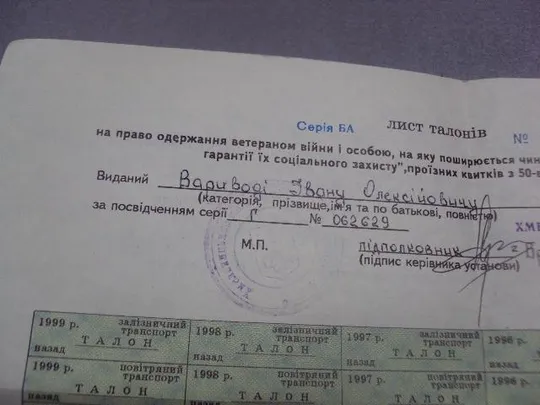 Серія БА ЛИСТ ТАЛОНІВ №
на право одержання ветераном війни і особою, на яку поширюється чин
гарантії їх соціального захисту", проїзних квитків з 50-в
Виданий Вариводі Івану Олексійовичу
(категорія, прізвище, ім'я та по батькові, повністю)
за посвідченням серії Г № 062629
ХМЕ
М.П. підполковник
(підпис керівника установи)
1999 р. залізничний транспорт 1998 р. залізничний транспорт 1997 р. залізничний транспорт 1996 р.
ТАЛОН ТАЛОН ТАЛОН
назад назад назад назад
1999 р. повітряний транспорт 1998 р. повітряний транспорт 1997 р. повітряний транспорт 1996 р.
ТАЛОН ТАЛОН ТАЛОН
назад